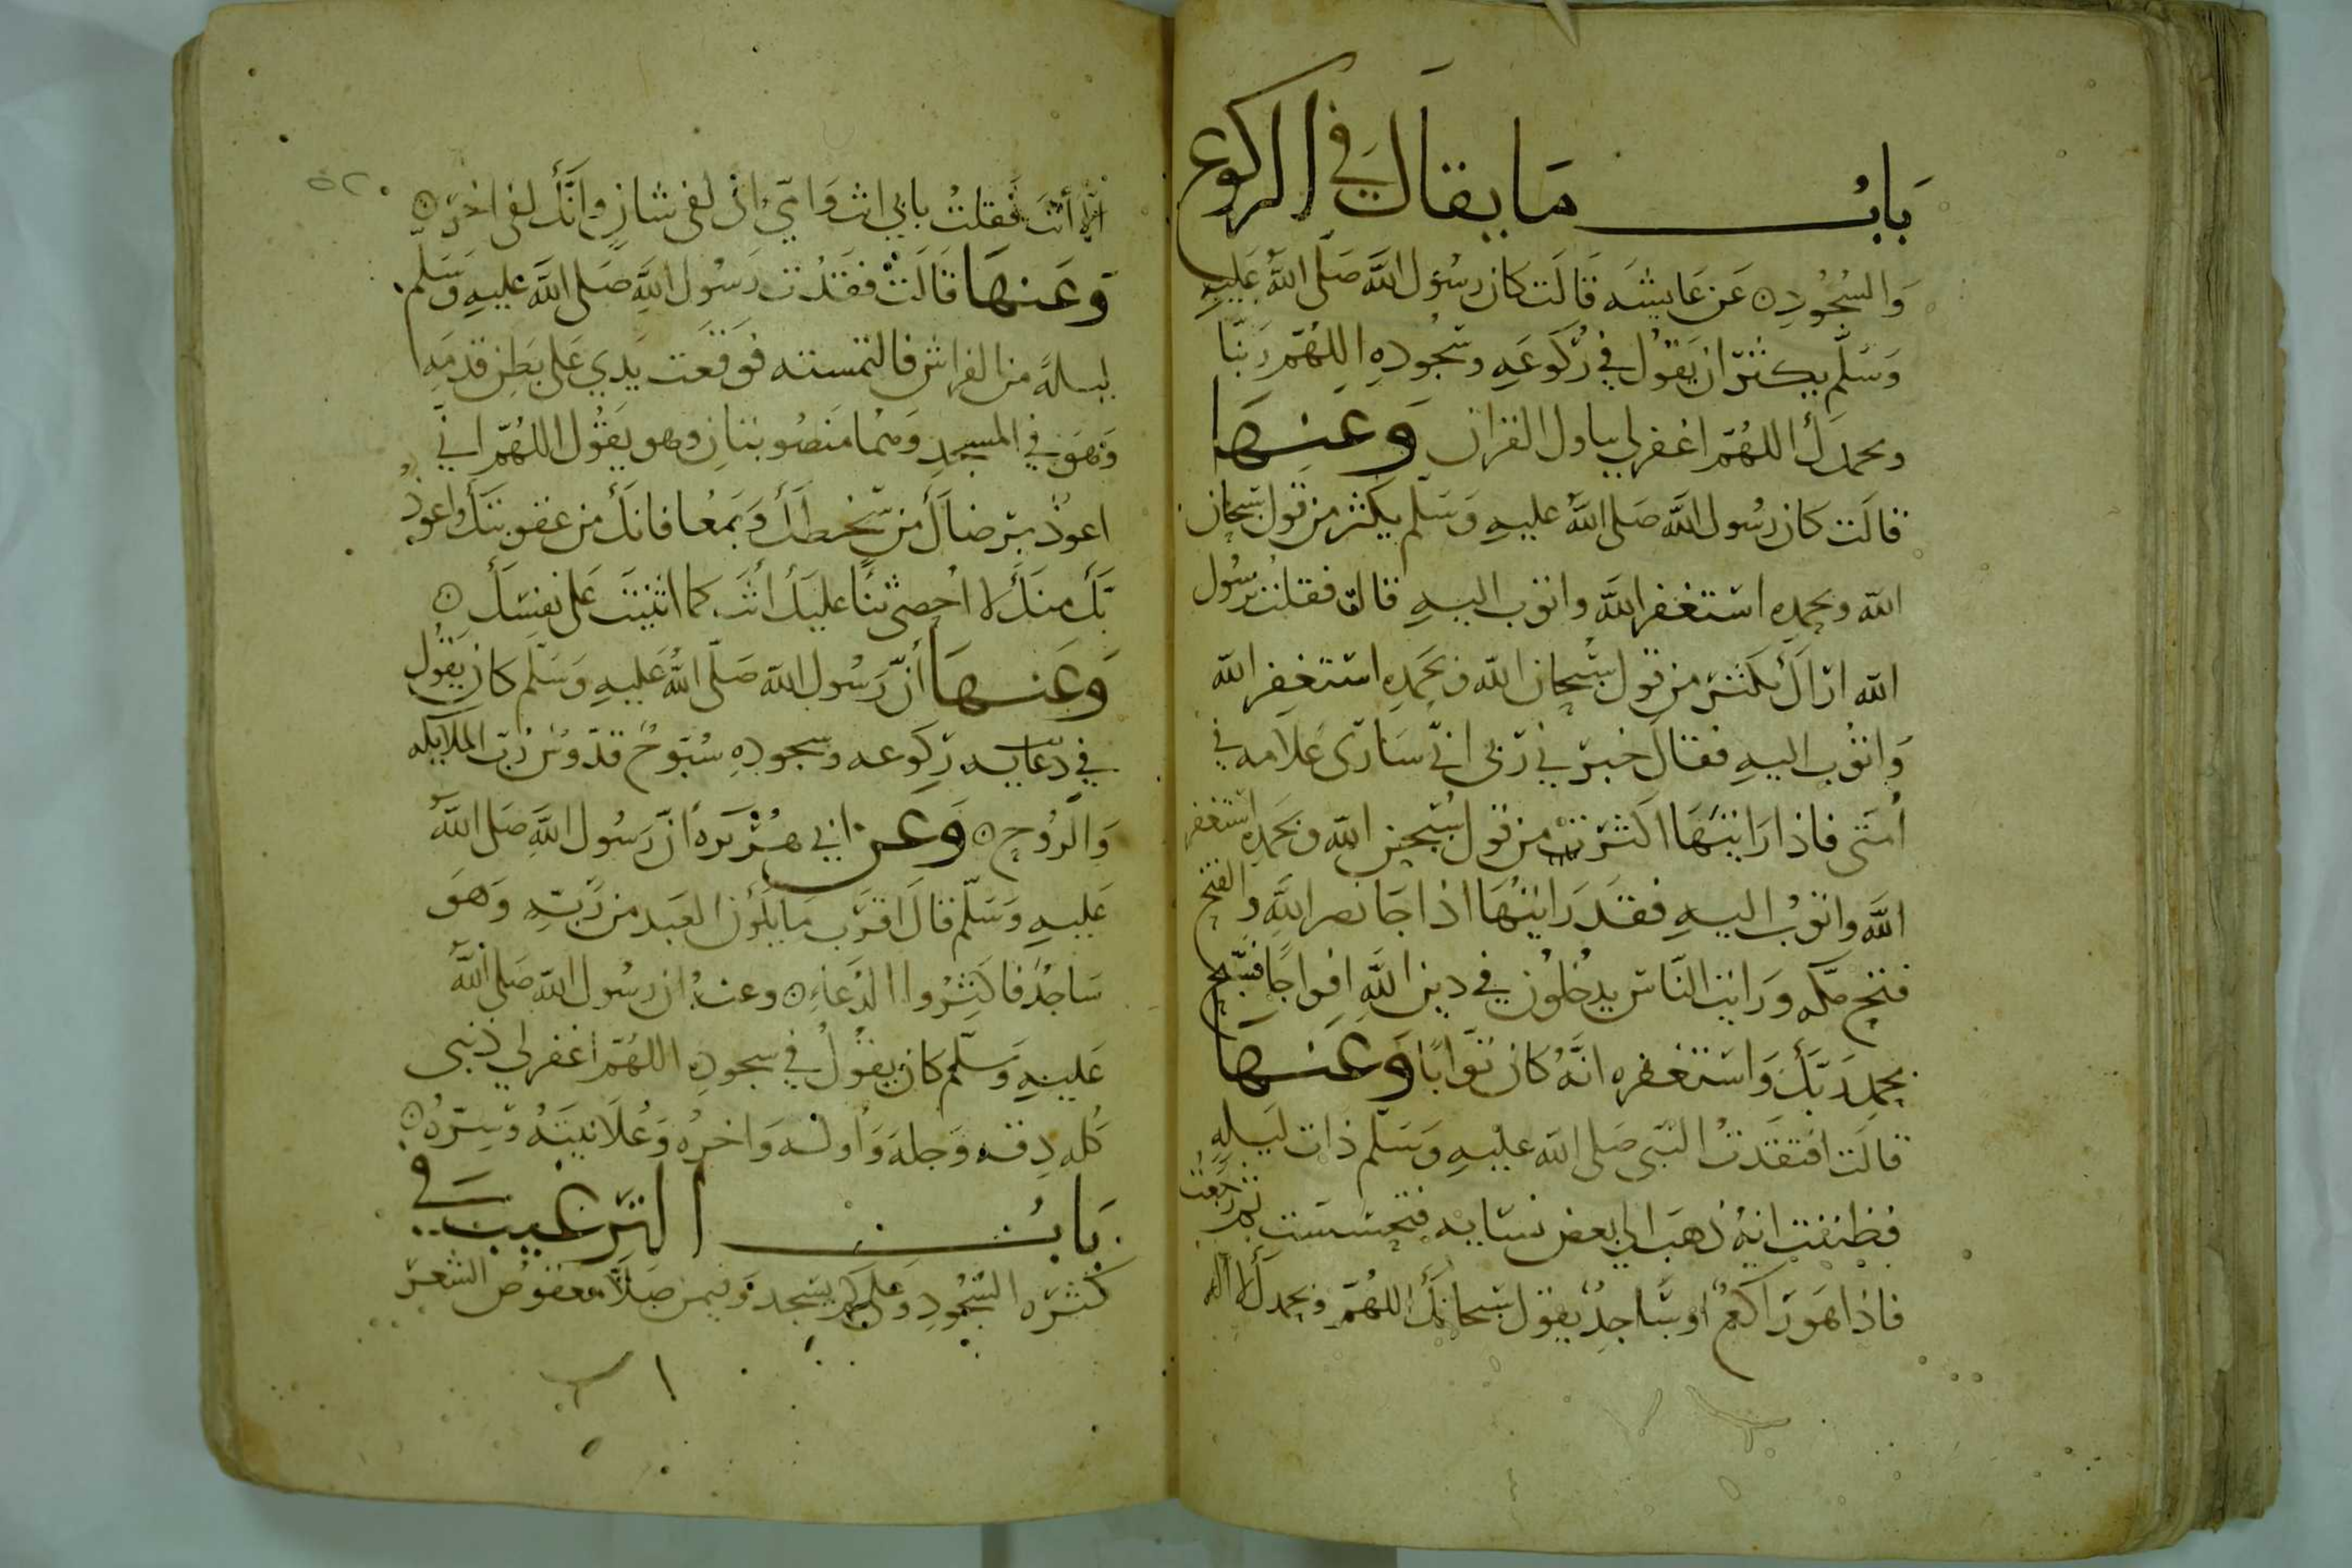 باب ما يقال في الركوع
والسجود عن عايشه قالت كان رسول الله صلى الله عليه
وسلم يكثر ان يقول في ركوعه وسجوده اللهم ربنا
وبحمدك اللهم اغفر لي يتاول القران وعنها
قالت كان رسول الله صلى الله عليه وسلم يكثر من قول سبحان
الله وبحمده استغفر الله واتوب اليه قالت فقلت يرسول
الله اراك تكثر من قول سبحان الله وبحمده استغفر الله
واتوب اليه فقال خبرني ربي اني سارى علامه في
امتي فاذا رايتها اكثرت من قول سبحن الله وبحمده استغفر
الله واتوب اليه فقد رايتها اذا جا نصر الله والفتح
فتح مكه ورايت الناس يدخلون في دين الله افواجا فسبح
بحمد ربك واستغفره انه كان توابا وعنها
قالت افتقدت النبي صلى الله عليه وسلم ذات ليله
فظننت انه ذهب الى بعض نسايه فتحسست ثم رجعت
فاذا هو راكع او ساجد يقول سبحانك اللهم وبحمدك لا اله
الا انت فقلت بابي انت وامي اني لفي شان وانك لفي اخر
وعنها قالت فقدت رسول الله صلى الله عليه وسلم
ليلة من الفراش فالتمسته فوقعت يدي على بطن قدميه
وهو في المسجد وهما منصوبتان وهو يقول اللهم اني
اعوذ برضاك من سخطك وبمعافاتك من عقوبتك واعوذ
بك منك لا احصي ثنا عليك انت كما اثنيت على نفسك
وعنها أن رسول الله صلى الله عليه وسلم كان يقول
في دعايه ركوعه وسجوده سبوح قدوس رب الملايكه
والروح وعن ابي هريره أن رسول الله صلى الله
عليه وسلم قال اقرب ما يكون العبد من ربه وهو
ساجد فاكثروا الدعاء وعنه ان رسول الله صلى الله
عليه وسلم كان يقول في سجوده اللهم اغفر لي ذنبي
كله دقه وجله واوله واخره وعلانيته وسره
باب الترغيب في
كثره السجود وعلى كم يسجد وفيمن صلا معقوص الشعر